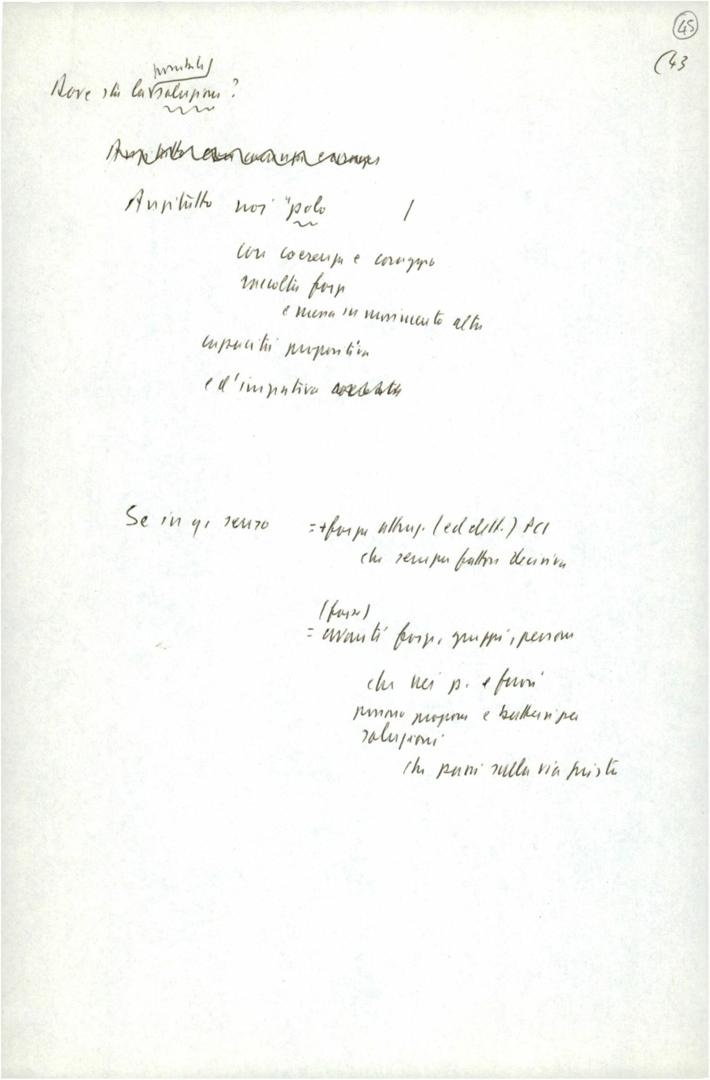 45
(43
possibile
Dove sta la soluzione?
Anzitutto noi "polo /
con coerenza e coraggio
raccolta forze
e messa in movimento altre
capacità propositiva
e d'iniziativa
Se in q. senso = + forza attraz. (ed elett.) PCI
che sempre fattore decisivo
(forse)
= avanti forze, gruppi, persone
che nei p. e fuori
possono proporre e battersi per
soluzioni
che parli sulla via giusta